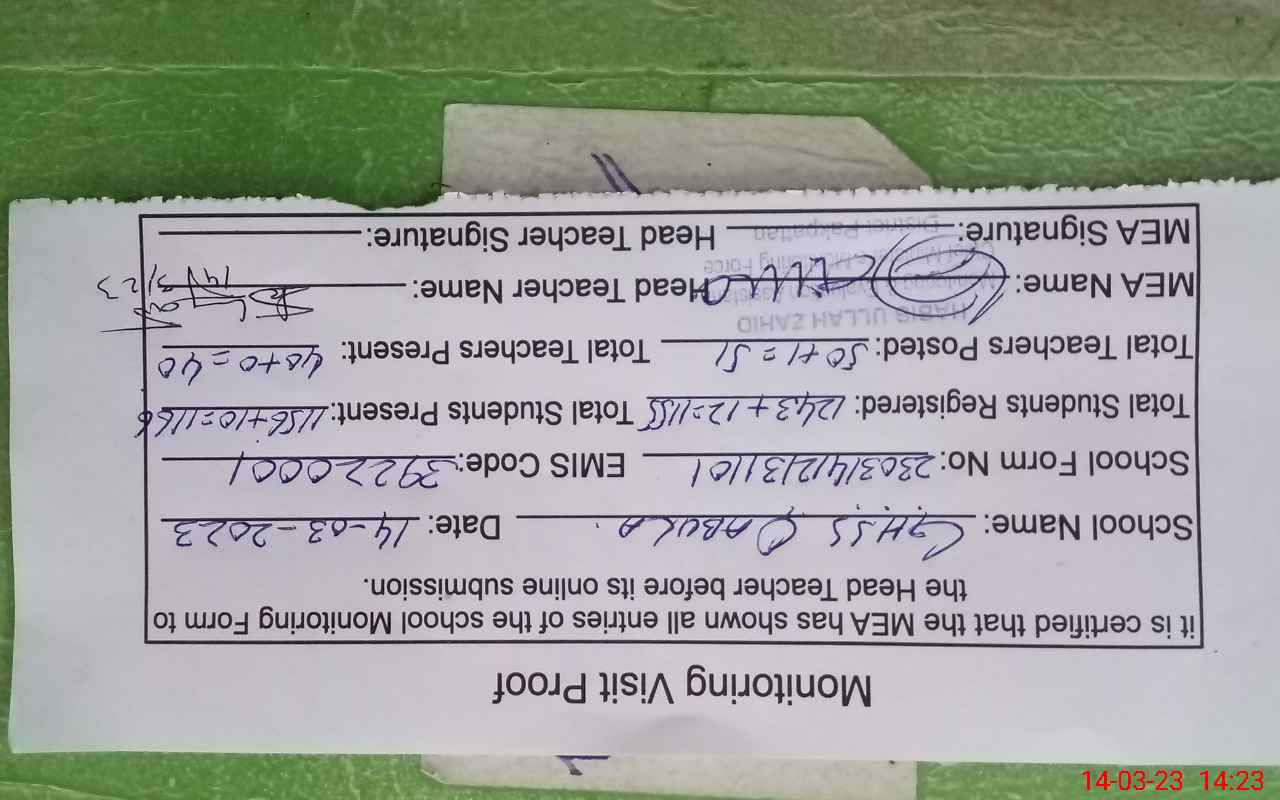 Monitoring Visit Proof
it is certified that the MEA has shown all entries of the school Monitoring Form to
the Head Teacher before its online submission.
School Name: GHSS QABULA Date: 14-03-2023
School Form No: 23031412131101 EMIS Code: 39220001
Total Students Registered: 1243+12=1155 Total Students Present: 1156+10=1166
Total Teachers Posted: 50+1=51 Total Teachers Present: 40+0=40
HABIB ULLAH ZAHID
MEA Name: Head Teacher Name:
Monitoring & Evaluation Assistant
Chief Minister's Monitoring Force
MEA Signature: Head Teacher Signature:
District Pakpattan
14/3/23
14-03-23 14:23